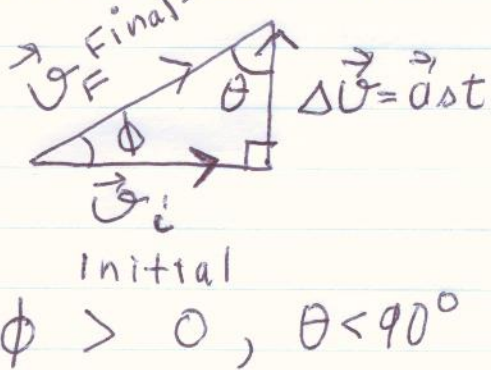 Final
v⃗_F
θ
Δv⃗ = a⃗Δt
ϕ
v⃗_i
Initial
ϕ > 0, θ < 90°